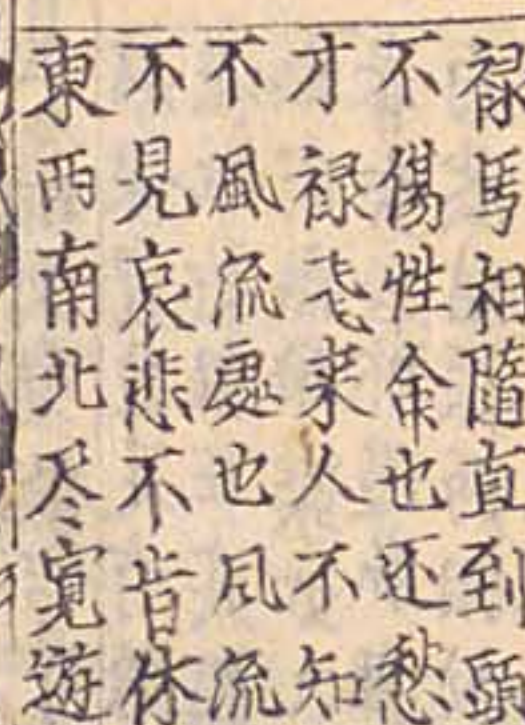 禄馬相隨直到頭
不傷性命也还愁
才禄飞来人不知
不風流處也风流
不見哀悲不肯休
東西南北尽寛遊